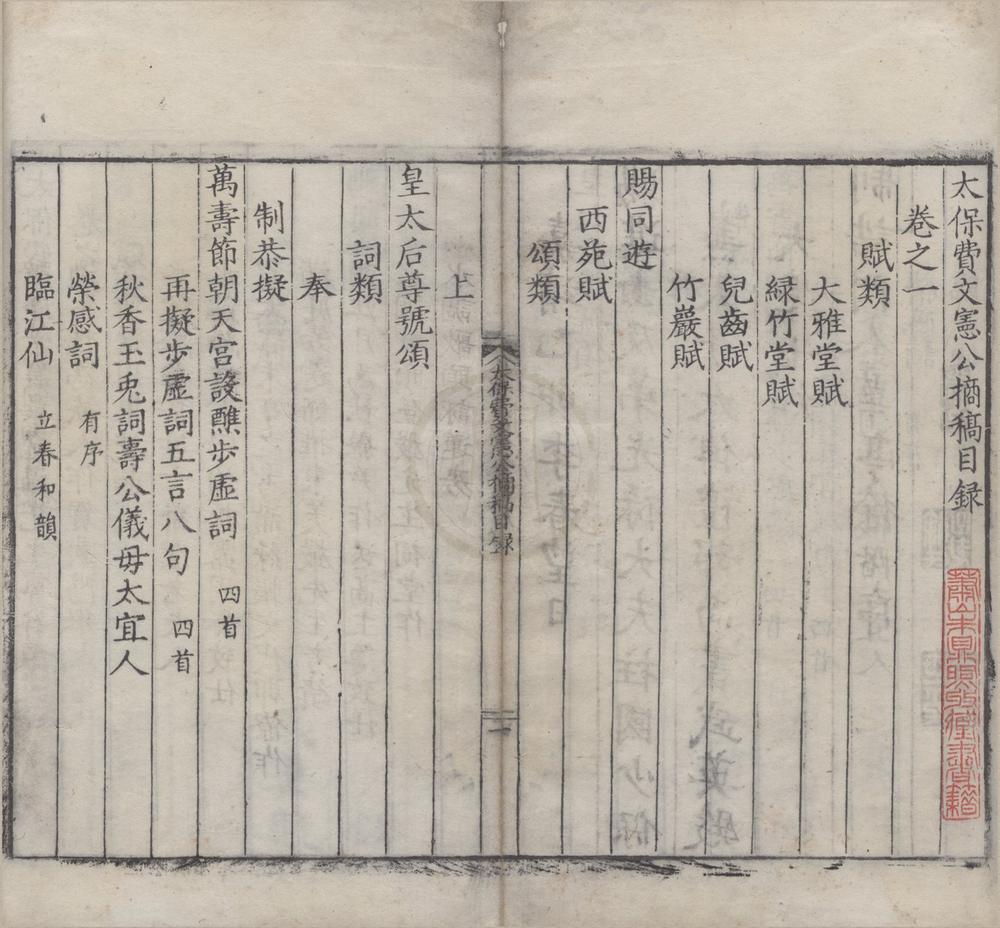 太保費文憲公摘稿目録
卷之一
賦類
大雅堂賦
緑竹堂賦
兒齒賦
竹巖賦
賜同遊
西苑賦
頌類
太保費文憲公摘稿目録
一
上
皇太后尊號頌
詞類
奉
制恭擬
萬壽節朝天宫設醮步虚詞 四首
再擬步虚詞五言八句 四首
秋香玉兎詞壽公儀毋太宜人
榮感詞 有序
臨江仙 立春和韻